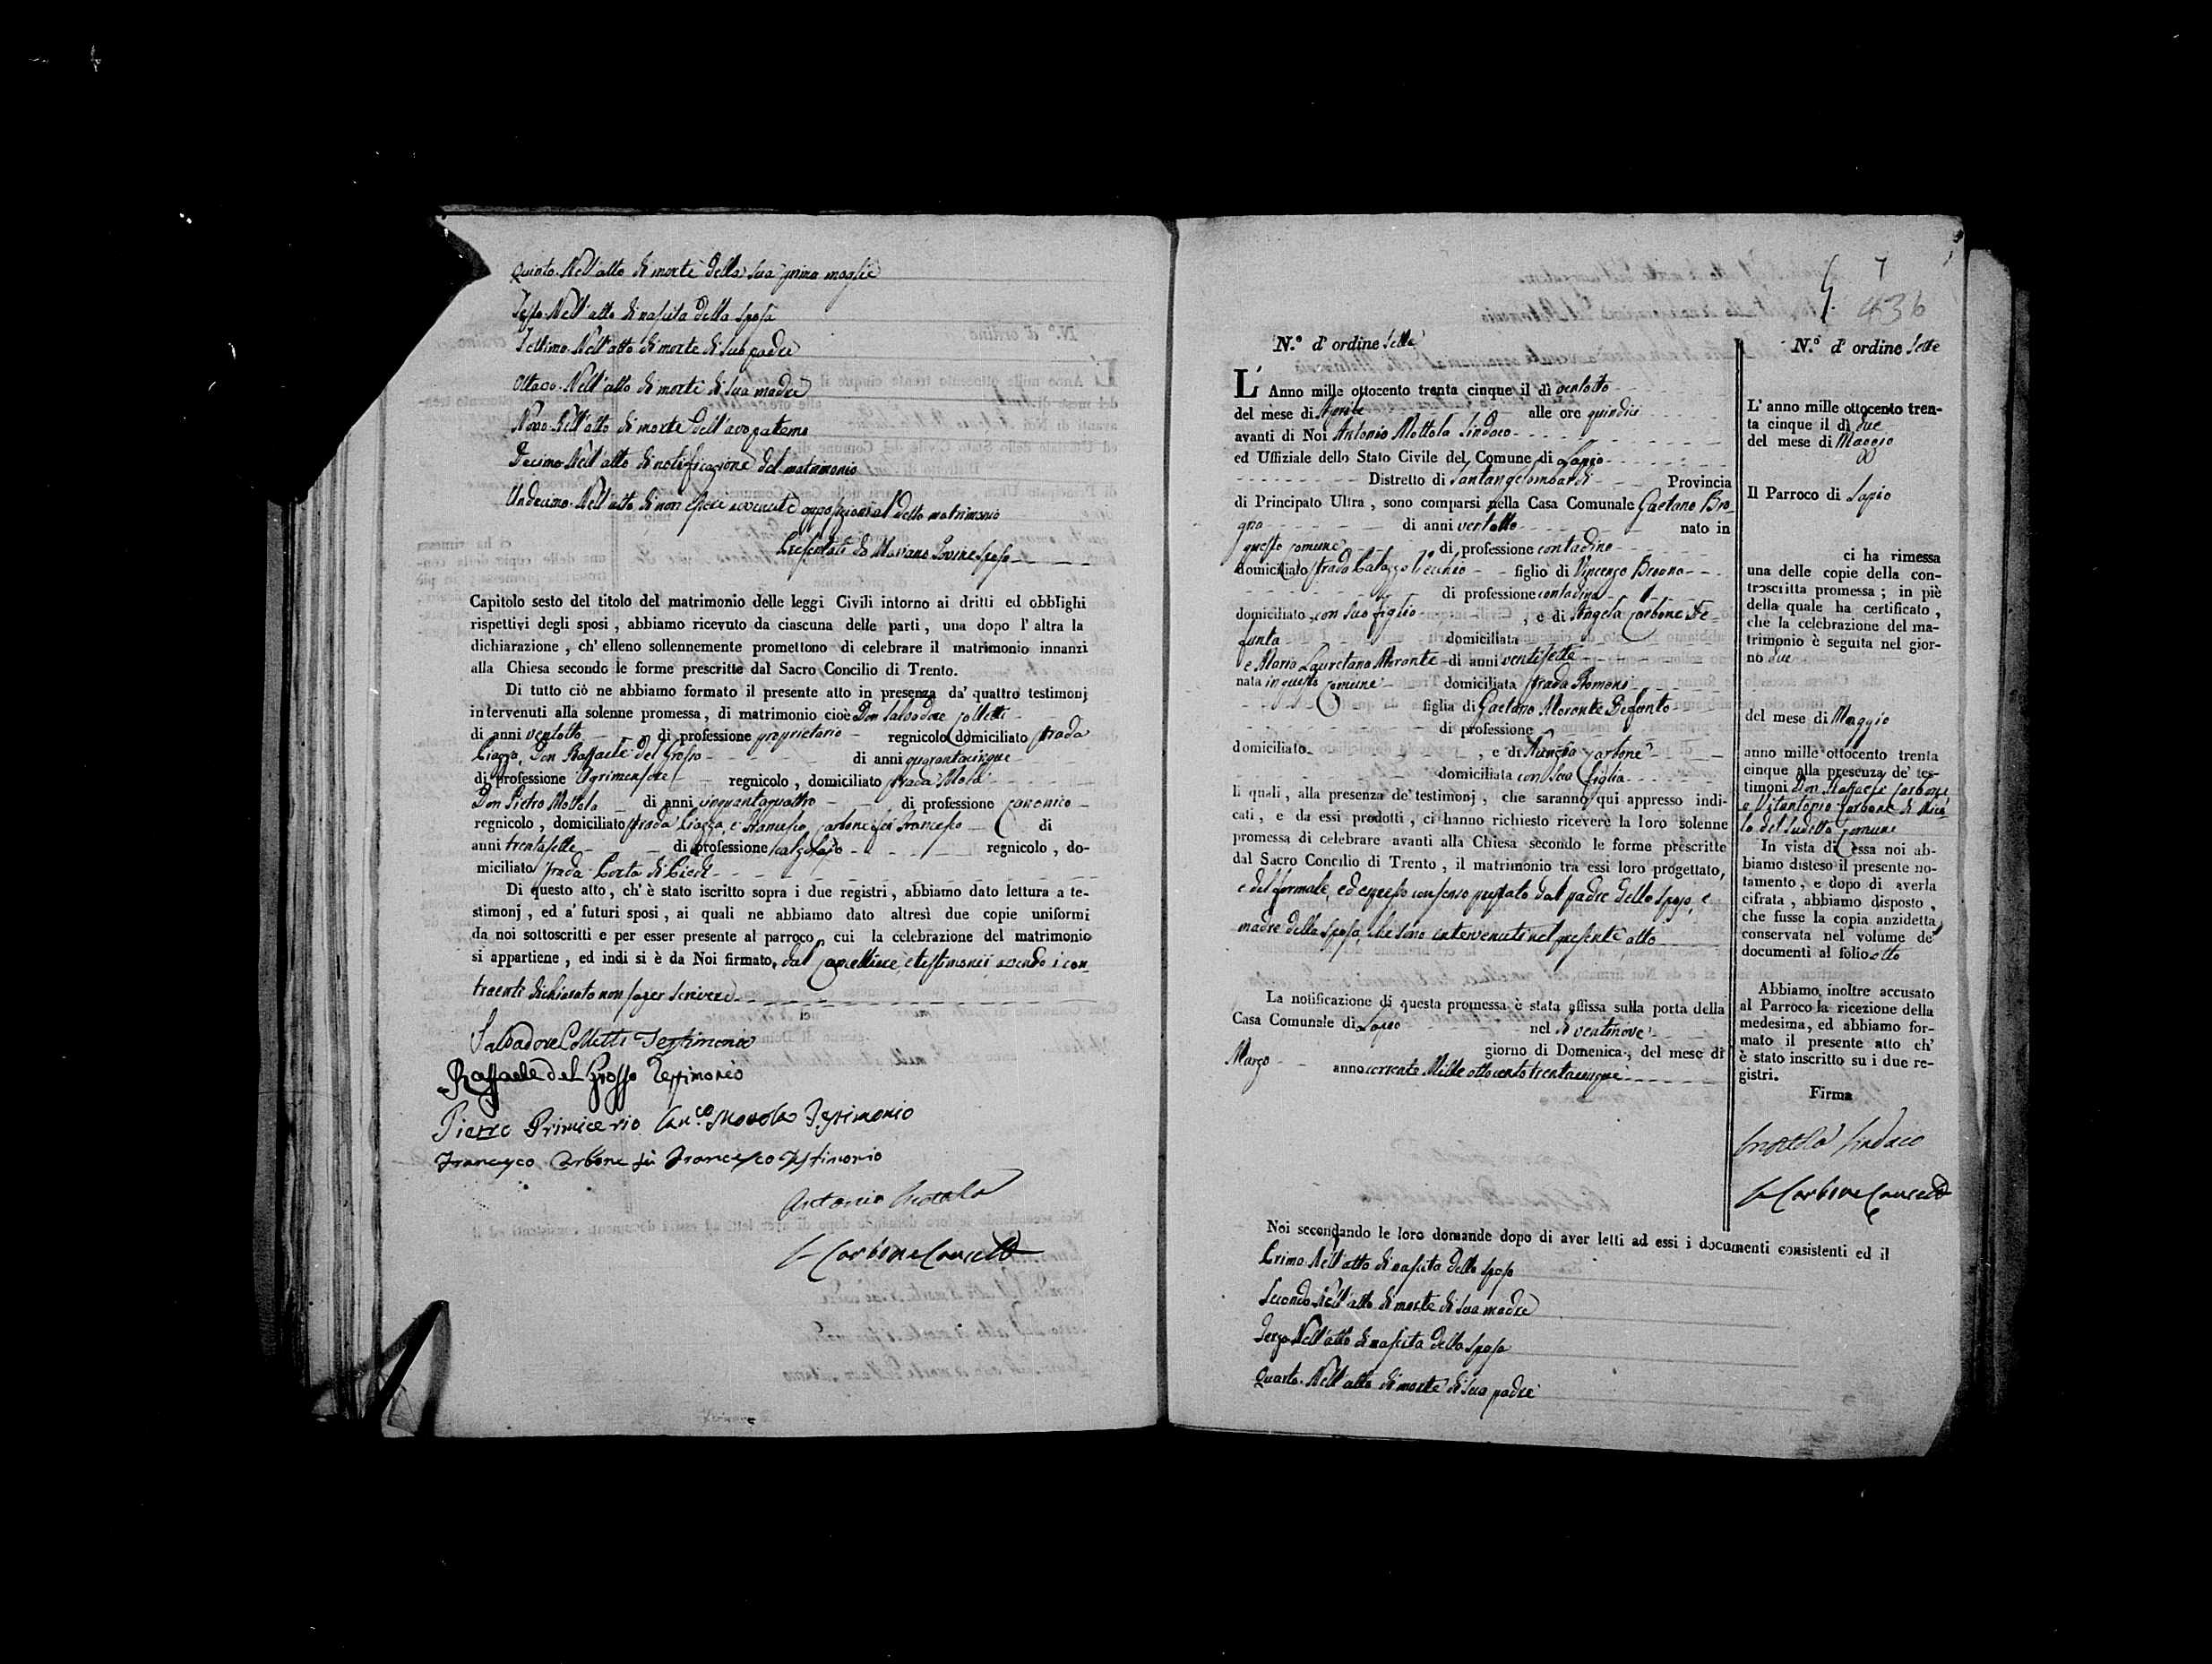 Quinto. Nell'atto di morte della sua prima moglie
Sesto. Nell'atto di nascita della sposa
Settimo. Nell'atto di morte di suo padre
Ottavo. Nell'atto di morte di sua madre
Nono. Nell'atto di morte dell'avo paterno
Decimo. Nell'atto di notificazione del matrimonio
Undecimo. Nell'atto di non essere avvenute opposizioni al detto matrimonio
Presentati da Mariano Iovine Sposo
Capitolo sesto del titolo del matrimonio delle leggi Civili intorno ai dritti ed obblighi
rispettivi degli sposi, abbiamo ricevuto da ciascuna delle parti, una dopo l'altra la
dichiarazione, ch'elleno sollennemente promettono di celebrare il matrimonio innanzi
alla Chiesa secondo le forme prescritte dal Sacro Concilio di Trento.
Di tutto ciò ne abbiamo formato il presente atto in presenza da' quattro testimonj
intervenuti alla solenne promessa, di matrimonio cioè Don Salvadore Colletti
di anni ventotto di professione proprietario regnicolo domiciliato strada
Piazza, Don Raffaele del Grosso di anni quarantacinque
di professione Agrimensore regnicolo, domiciliato strada
Don Pietro Mottola di anni cinquantaquattro di professione Canonico
regnicolo, domiciliato strada Piazza, e Francesco Carbone fu Francesco di
anni trentasette di professione calzolajo regnicolo, do-
miciliato strada Porta di Piedi
Di questo atto, ch'è stato iscritto sopra i due registri, abbiamo dato lettura a te-
stimonj, ed a' futuri sposi, ai quali ne abbiamo dato altresì due copie uniformi
da noi sottoscritti e per esser presente al parroco, cui la celebrazione del matrimonio
si appartiene, ed indi si è da Noi firmato, dal Cancelliere, e testimonii avendo i con-
traenti dichiarato non saper scrivere
Salvadore Colletti Testimonio
Raffaele del Grosso Testimonio
Pietro Primicerio Can.co Mottola Testimonio
Francesco Carbone fu Francesco Testimonio
Antonio Mottola
Carbone Cancell
7
436
N.º d'ordine Sette
L'Anno mille ottocento trenta cinque il dì ventotto
del mese di Aprile alle ore quindici
avanti di Noi Antonio Mottola Sindaco
ed Uffiziale dello Stato Civile del Comune di Lapio
Distretto di Santangelombardi Provincia
di Principato Ultra, sono comparsi nella Casa Comunale Gaetano Bro-
gna di anni ventotto nato in
questo comune di professione contadino
domiciliato strada Palazzo Vecchio figlio di Vincenzo Brogna
di professione contadino
domiciliato con suo figlio, e di Angela Carbone De-
funta domiciliata
e Maria Lauretana Morante di anni ventisette
nata in questo comune domiciliata strada
figlia di Gaetano Morante Defunto
di professione
domiciliato, e di Nunzia Carbone
domiciliata con sua figlia
li quali, alla presenza de' testimonj, che saranno qui appresso indi-
cati, e da essi prodotti, ci hanno richiesto ricevere la loro solenne
promessa di celebrare avanti alla Chiesa secondo le forme prescritte
dal Sacro Concilio di Trento, il matrimonio tra essi loro progettato,
e del formale, ed espresso consenso prestato dal padre dello sposo, e
madre della sposa, che sono intervenuti nel presente atto
La notificazione di questa promessa è stata affissa sulla porta della
Casa Comunale di Lapio nel dì ventinove
giorno di Domenica, del mese di
Marzo anno corrente Mille ottocento trentacinque
N.º d'ordine Sette
L'anno mille ottocento tren-
ta cinque il dì due
del mese di Maggio
Il Parroco di Lapio
ci ha rimessa
una delle copie della con-
troscritta promessa; in piè
della quale ha certificato,
che la celebrazione del ma-
trimonio è seguita nel gior-
no due
del mese di Maggio
anno mille ottocento trenta
cinque alla presenza de' tes-
timoni Don Raffaele Carbone
e Vitantonio Carbone di Nico-
la del sudetto Comune
In vista di essa noi ab-
biamo disteso il presente no-
tamento, e dopo di averla
cifrata, abbiamo disposto,
che fusse la copia anzidetta
conservata nel volume de'
documenti al folio otto
Abbiamo inoltre accusato
al Parroco la ricezione della
medesima, ed abbiamo for-
mato il presente atto ch'
è stato inscritto su i due re-
gistri.
Firma
Mottola Sindaco
Carbone Cancell
Noi secondando le loro domande dopo di aver letti ad essi i documenti consistenti ed il
Primo. Nell'atto di nascita dello sposo
Secondo. Nell'atto di morte di sua madre
Terzo. Nell'atto di nascita della sposa
Quarto. Nell'atto di morte di suo padre